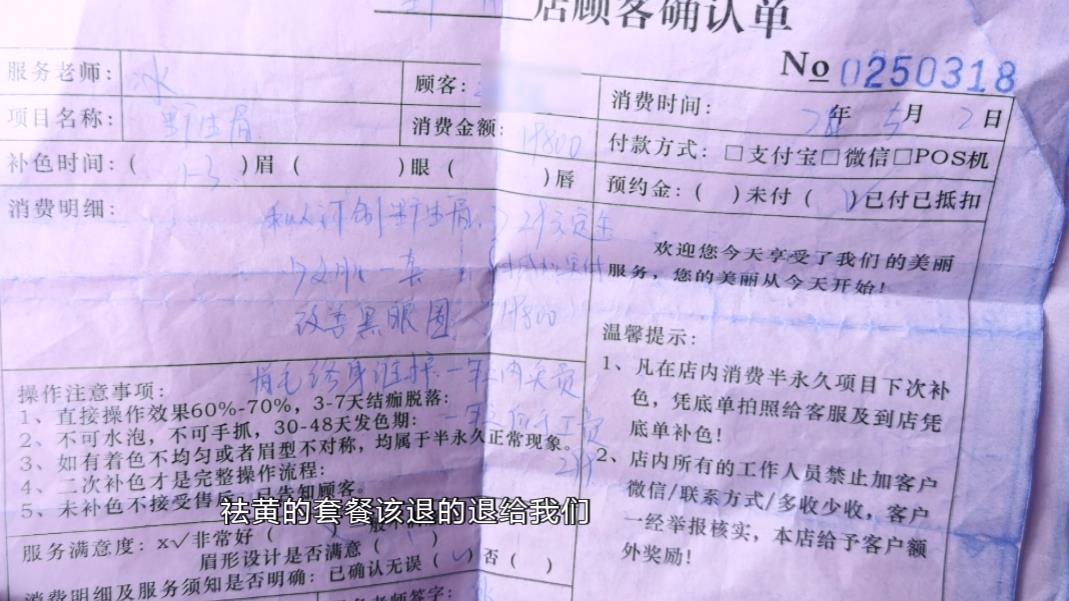 店顾客确认单
No 0250318
服务老师：冰
顾客：
消费时间： 年 5月 2日
项目名称：野生眉
消费金额：19800
付款方式：□支付宝□微信□POS机
补色时间：（ ）眉（ ）眼（ ）唇
预约金：（ ）未付（ ）已付已抵扣
消费明细：
私人订制野生眉
改善黑眼圈
欢迎您今天享受了我们的美丽
服务，您的美丽从今天开始！
温馨提示：
1、凡在店内消费半永久项目下次补
色，凭底单拍照给客服及到店凭
底单补色！
2、店内所有的工作人员禁止加客户
微信/联系方式/多收少收，客户
一经举报核实，本店给予客户额
外奖励！
眉毛终身维护 一年内免费
操作注意事项：
1、直接操作效果60%-70%，3-7天结痂脱落：
2、不可水泡，不可手抓，30-48天发色期：
3、如有着色不均匀或者眉型不对称，均属于半永久正常现象。
4、二次补色才是完整操作流程：
5、未补色不接受售后，已告知顾客。
祛黄的套餐该退的退给我们
服务满意度：x√非常好（ ） （ ）
眉形设计是否满意（√）否（ ）
消费明细及服务须知是否明确：已确认无误（
老师签字：